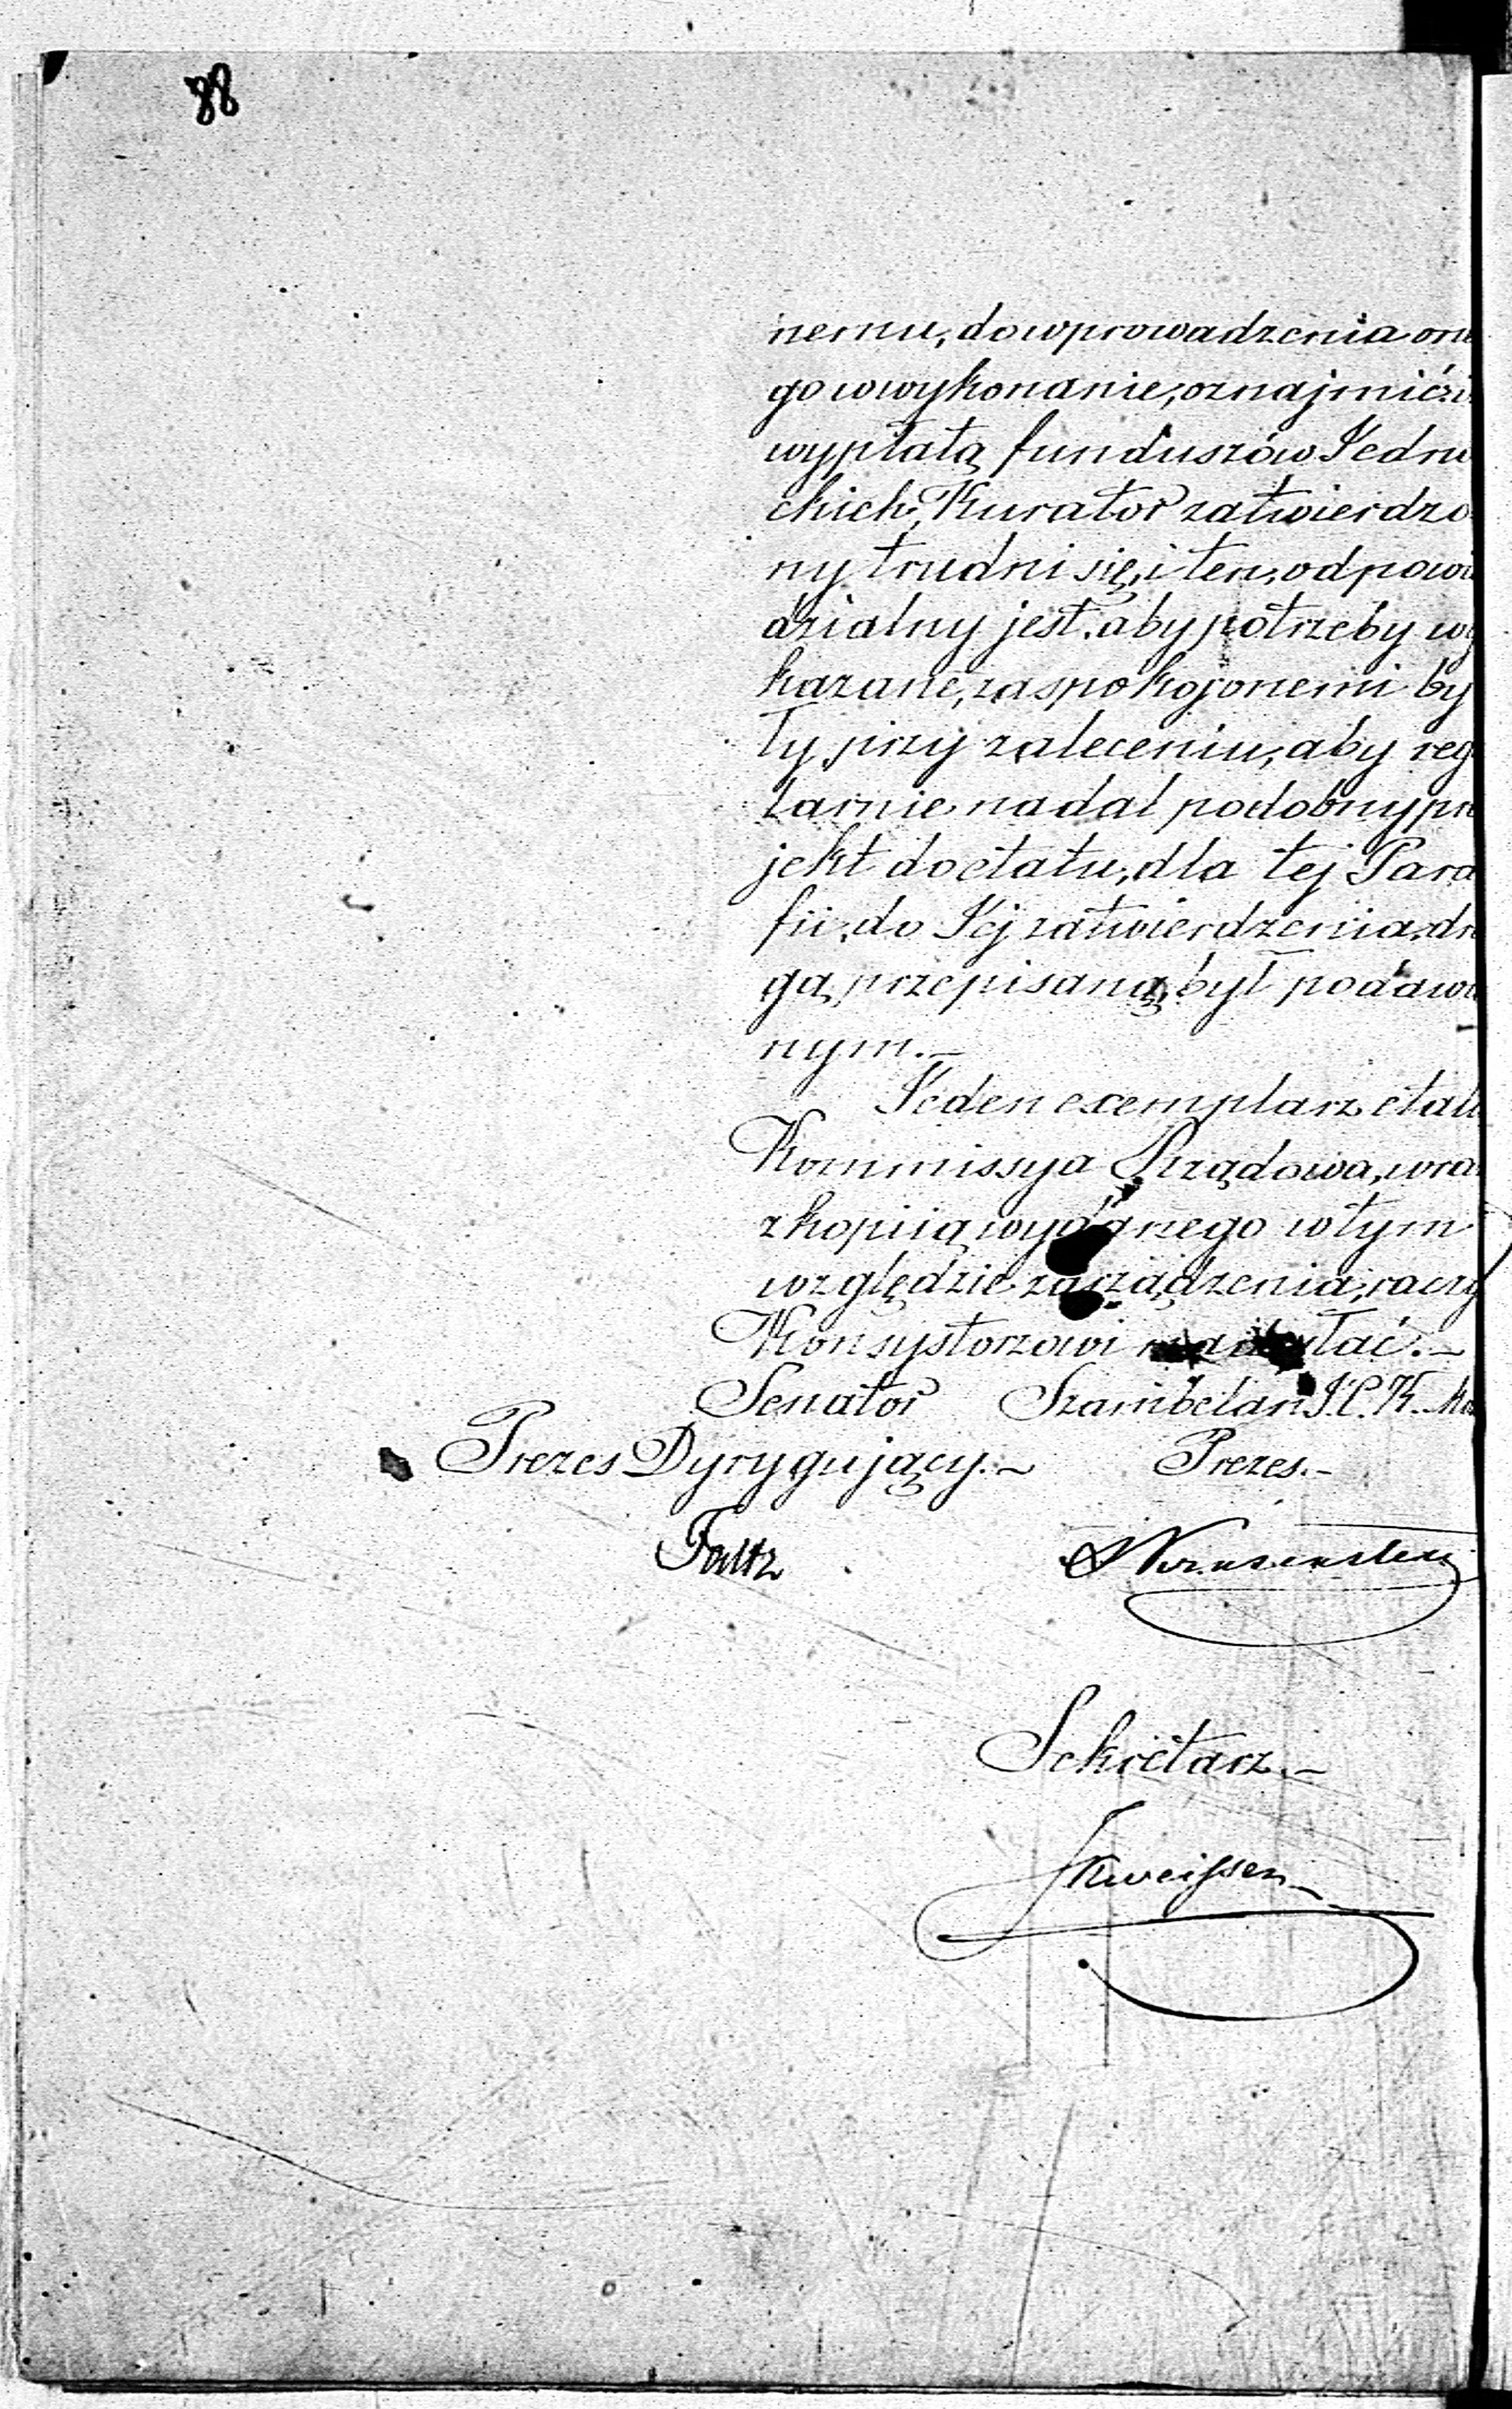 88
nemu, do wprowadzenia one
go w wykonanie, oznajmić, iż
wypłatą funduszów Jedno
ckich, Kurator zatwierdzo
ny trudni się, i ten, odpowie
dzialny jest, aby potrzeby wy
kazane, zaspokojonemi by
ły, przy zaleceniu, aby regu
larnie nadal podobny pro
jekt do etatu, dla tej Para
fii, do Jej zatwierdzenia, dro
gą przepisaną, był podawa
nym.—
Jeden exemplarz etatu
Kommissya Rządowa, wraz
z kopiią wydanego w tym
względzie zarządzenia, raczy
Konsystorzowi nadesłać.—
Senator Szambelan J.C.K. Mo
Prezes Dyrygujący.— Prezes.—
Faltz
Sekretarz.—